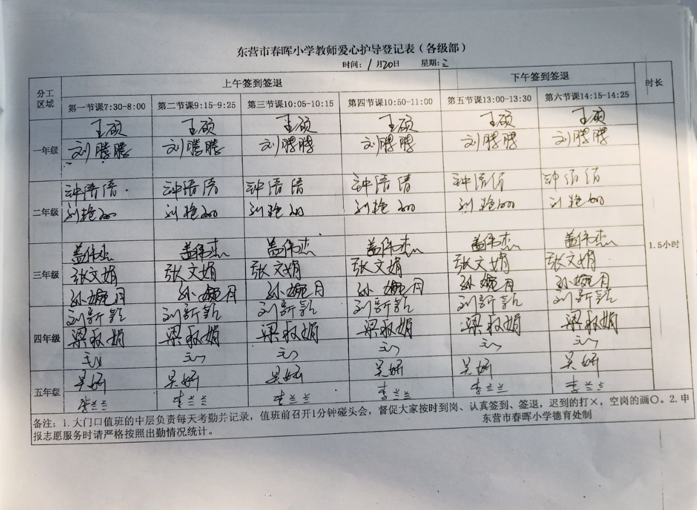 东营市春晖小学教师爱心护导登记表（各级部）
时间：1月20日 星期：三
分工区域 上午签到签退 下午签到签退 时长
第一节课7:30-8:00 第二节课9:15-9:25 第三节课10:05-10:15 第四节课10:50-11:00 第五节课13:00-13:30 第六节课14:15-14:25
王硕 王硕 王硕 王硕 王硕 王硕
一年级 刘腾腾 刘腾腾 刘腾腾 刘腾腾 刘腾腾 刘腾腾
二年级
盖伟杰 盖伟杰 盖伟杰 盖伟杰 盖伟杰 盖伟杰
1.5小时
三年级 张文娟 张文娟 张文娟 张文娟 张文娟 张文娟
孙婉月 孙婉月 孙婉月 孙婉月 孙婉月 孙婉月
刘新颖 刘新颖 刘新颖 刘新颖 刘新颖 刘新颖
四年级 梁叔娟 梁叔娟 梁叔娟 梁叔娟 梁叔娟 梁叔娟
吴妍 吴妍 吴妍 吴妍 吴妍 吴妍
五年级 李兰兰 李兰兰 李兰兰 李兰兰 李兰兰 李兰兰
备注：1.大门口值班的中层负责每天考勤并记录，值班前召开1分钟碰头会，督促大家按时到岗、认真签到、签退，迟到的打×，空岗的画〇。2.申
报志愿服务时请严格按照出勤情况统计。 东营市春晖小学德育处制